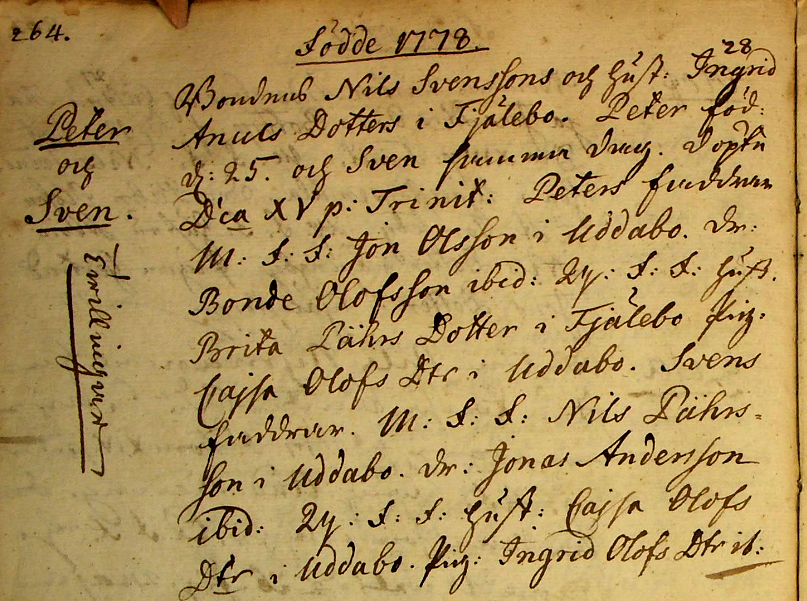 264.
Födde 1778.
28
Peter
och
Sven.
Tvillingar
Bondens Nils Svenssons och hust: Ingrid
Anders Dotters i Fjälebo. Peter föd:
d: 25. och Sven samma dag. Döpte
D'ca XV p: Trinit: Peters faddrar
M: S: S: Jon Olsson i Uddabo. dr:
Bonde Olofsson ibid: Qv: S: S: hust.
Brita Pährs Dotter i Fjälebo Pig:
Cajsa Olofs Dtr i Uddabo. Svens
faddrar. M: S: S: Nils Pährs-
son i Uddabo. dr: Jonas Andersson
ibid: Qv: S: S: hust: Cajsa Olofs
Dtr i Uddabo. Pig: Ingrid Olofs Dtr ib: